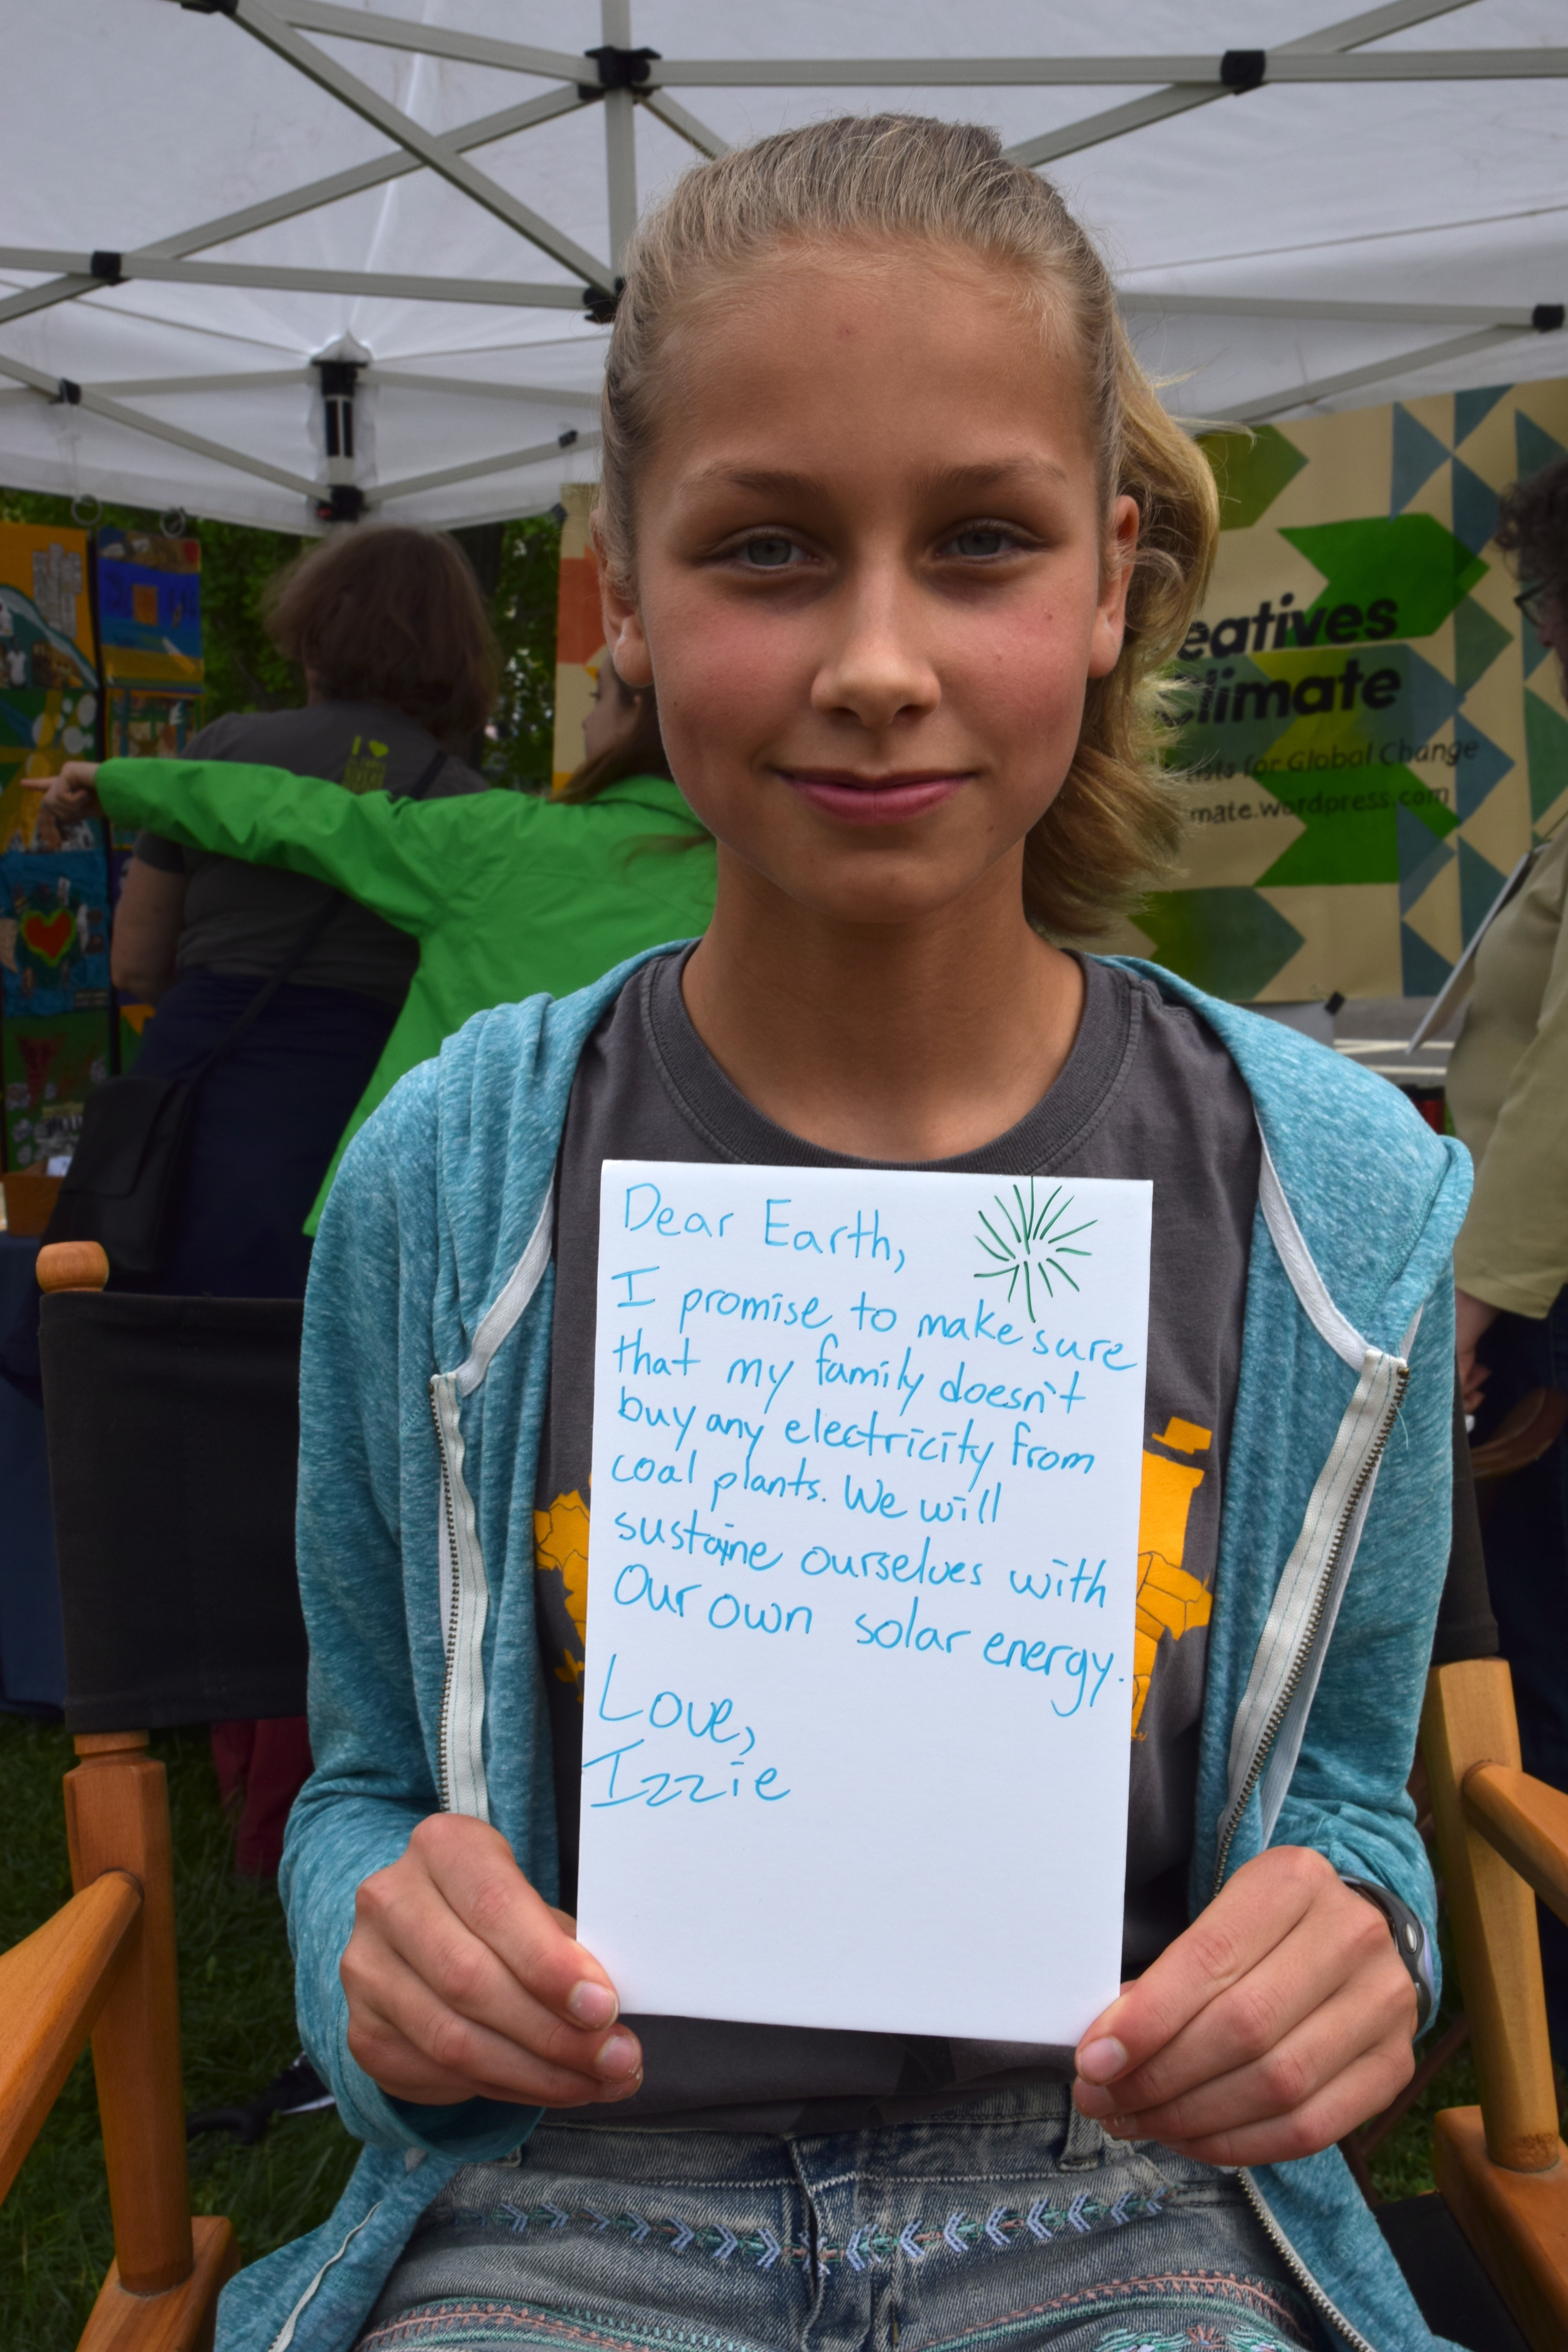 I
eatives
Climate
ists for Global Change
mate.wordpress.com
Dear Earth,
I promise to make sure
that my family doesn't
buy any electricity from
coal plants. We will
sustaine ourselves with
Our own solar energy.
Love,
Izzie